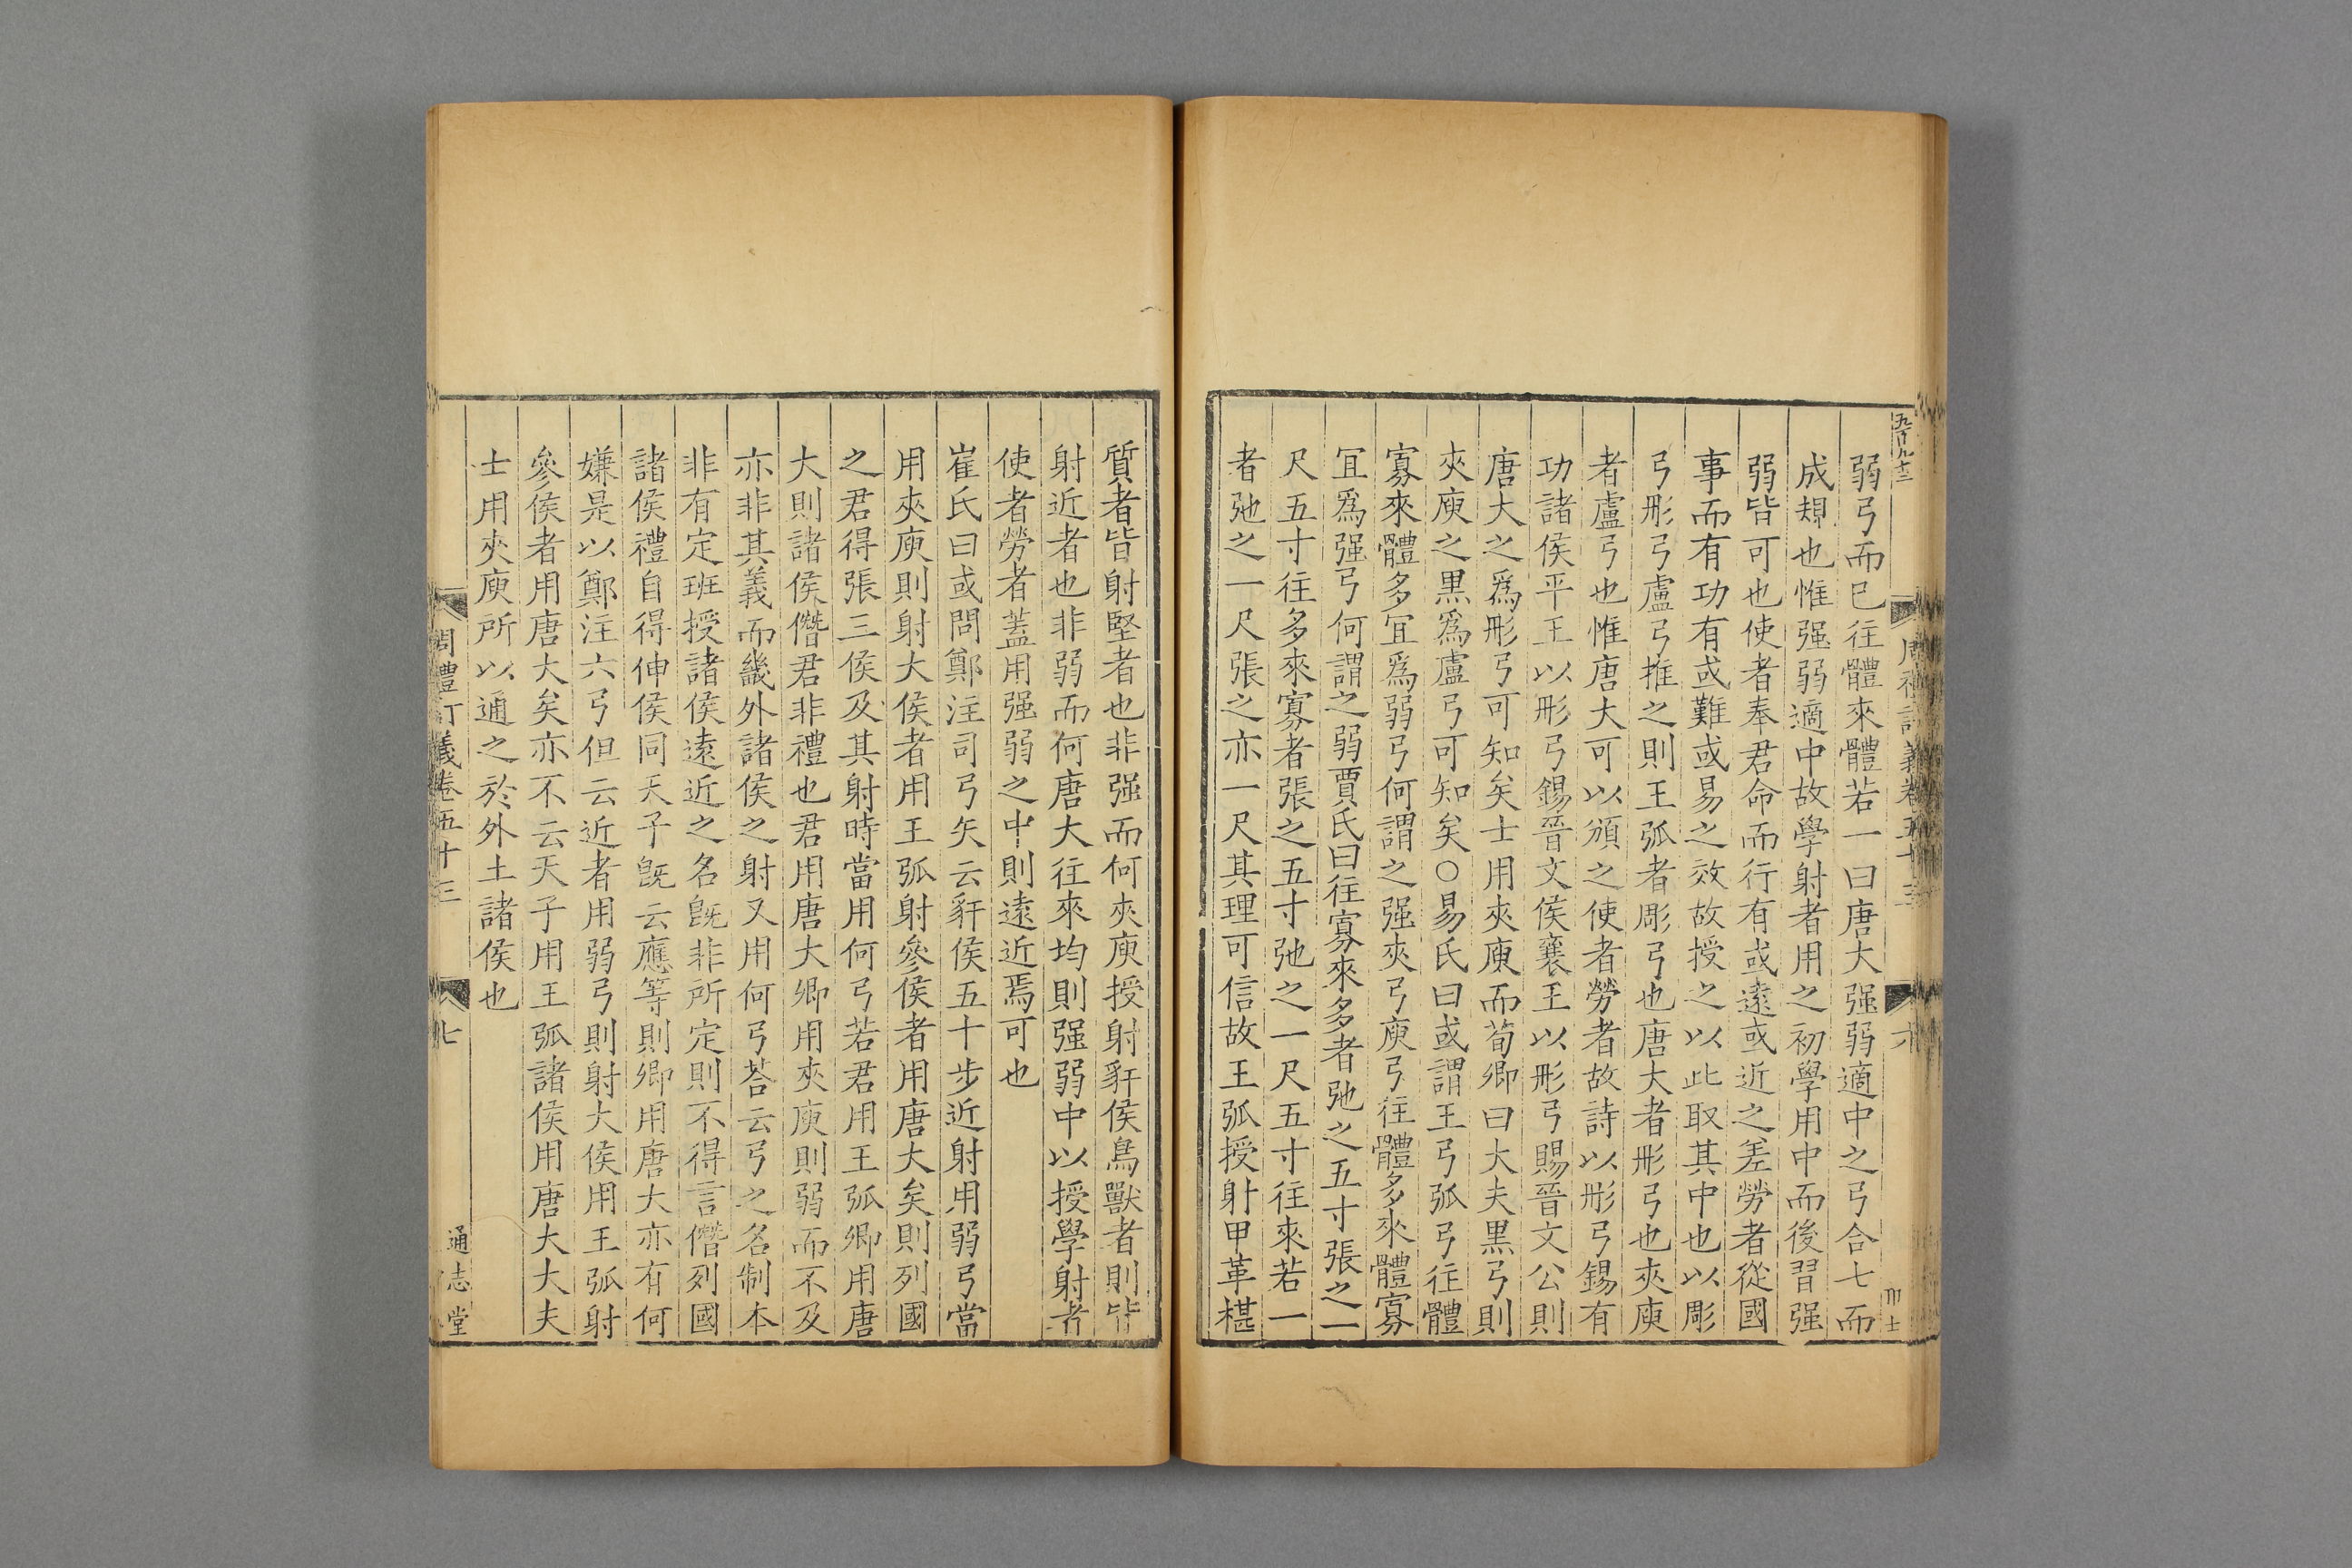 弱弓而已往體來體若一曰唐大强弱適中之弓合七而
成規也惟强弱適中故學射者用之初學用中而後習强
弱皆可也使者奉君命而行有或遠或近之差勞者從國
事而有功有或難或易之效故授之以此取其中也以彫
弓彤弓盧弓推之則王弧者彫弓也唐大者彤弓也夾庾
者盧弓也惟唐大可以頒之使者勞者故詩以彤弓錫有
功諸侯平王以彤弓錫晉文侯襄王以彤弓賜晉文公則
唐大之爲彤弓可知矣士用夾庾而荀卿曰大夫黒弓則
夾庾之黒爲盧弓可知矣○易氏曰或謂王弓弧弓往體
寡來體多冝爲弱弓何謂之强夾弓庾弓往體多來體寡
冝爲强弓何謂之弱賈氏曰往寡來多者弛之五寸張之一
尺五寸往多來寡者張之五寸弛之一尺五寸往來若一
者弛之一尺張之亦一尺其理可信故王弧授射甲革椹
六
質者皆射堅者也非强而何夾庾授射豻侯鳥獸者則皆
射近者也非弱而何唐大往來均則强弱中以授學射者
使者勞者蓋用强弱之中則遠近焉可也
崔氏曰或問鄭注司弓矢云豻侯五十步近射用弱弓當
用夾庾則射大侯者用王弧射參侯者用唐大矣則列國
之君得張三侯及其射時當用何弓若君用王弧卿用唐
大則諸侯僭君非禮也君用唐大卿用夾庾則弱而不及
亦非其義而畿外諸侯之射又用何弓荅云弓之名制本
非有定班授諸侯遠近之名旣非所定則不得言僭列國
諸侯禮自得伸侯同天子旣云應等則卿用唐大亦有何
嫌是以鄭注六弓但云近者用弱弓則射大侯用王弧射
參侯者用唐大矣亦不云天子用王弧諸侯用唐大大夫
士用夾庾所以通之於外土諸侯也
周禮訂義卷五十三
七
通志堂